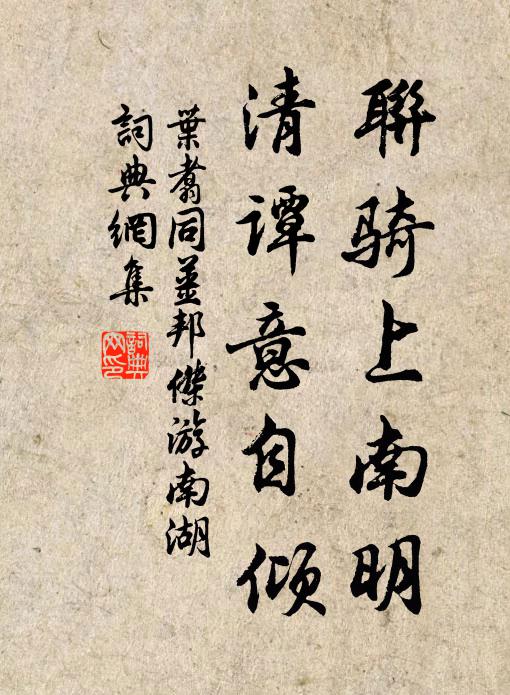 聯骑上南明
清谭意自倾
葉翥同姜邦傑游南湖
詞典網集
詞典